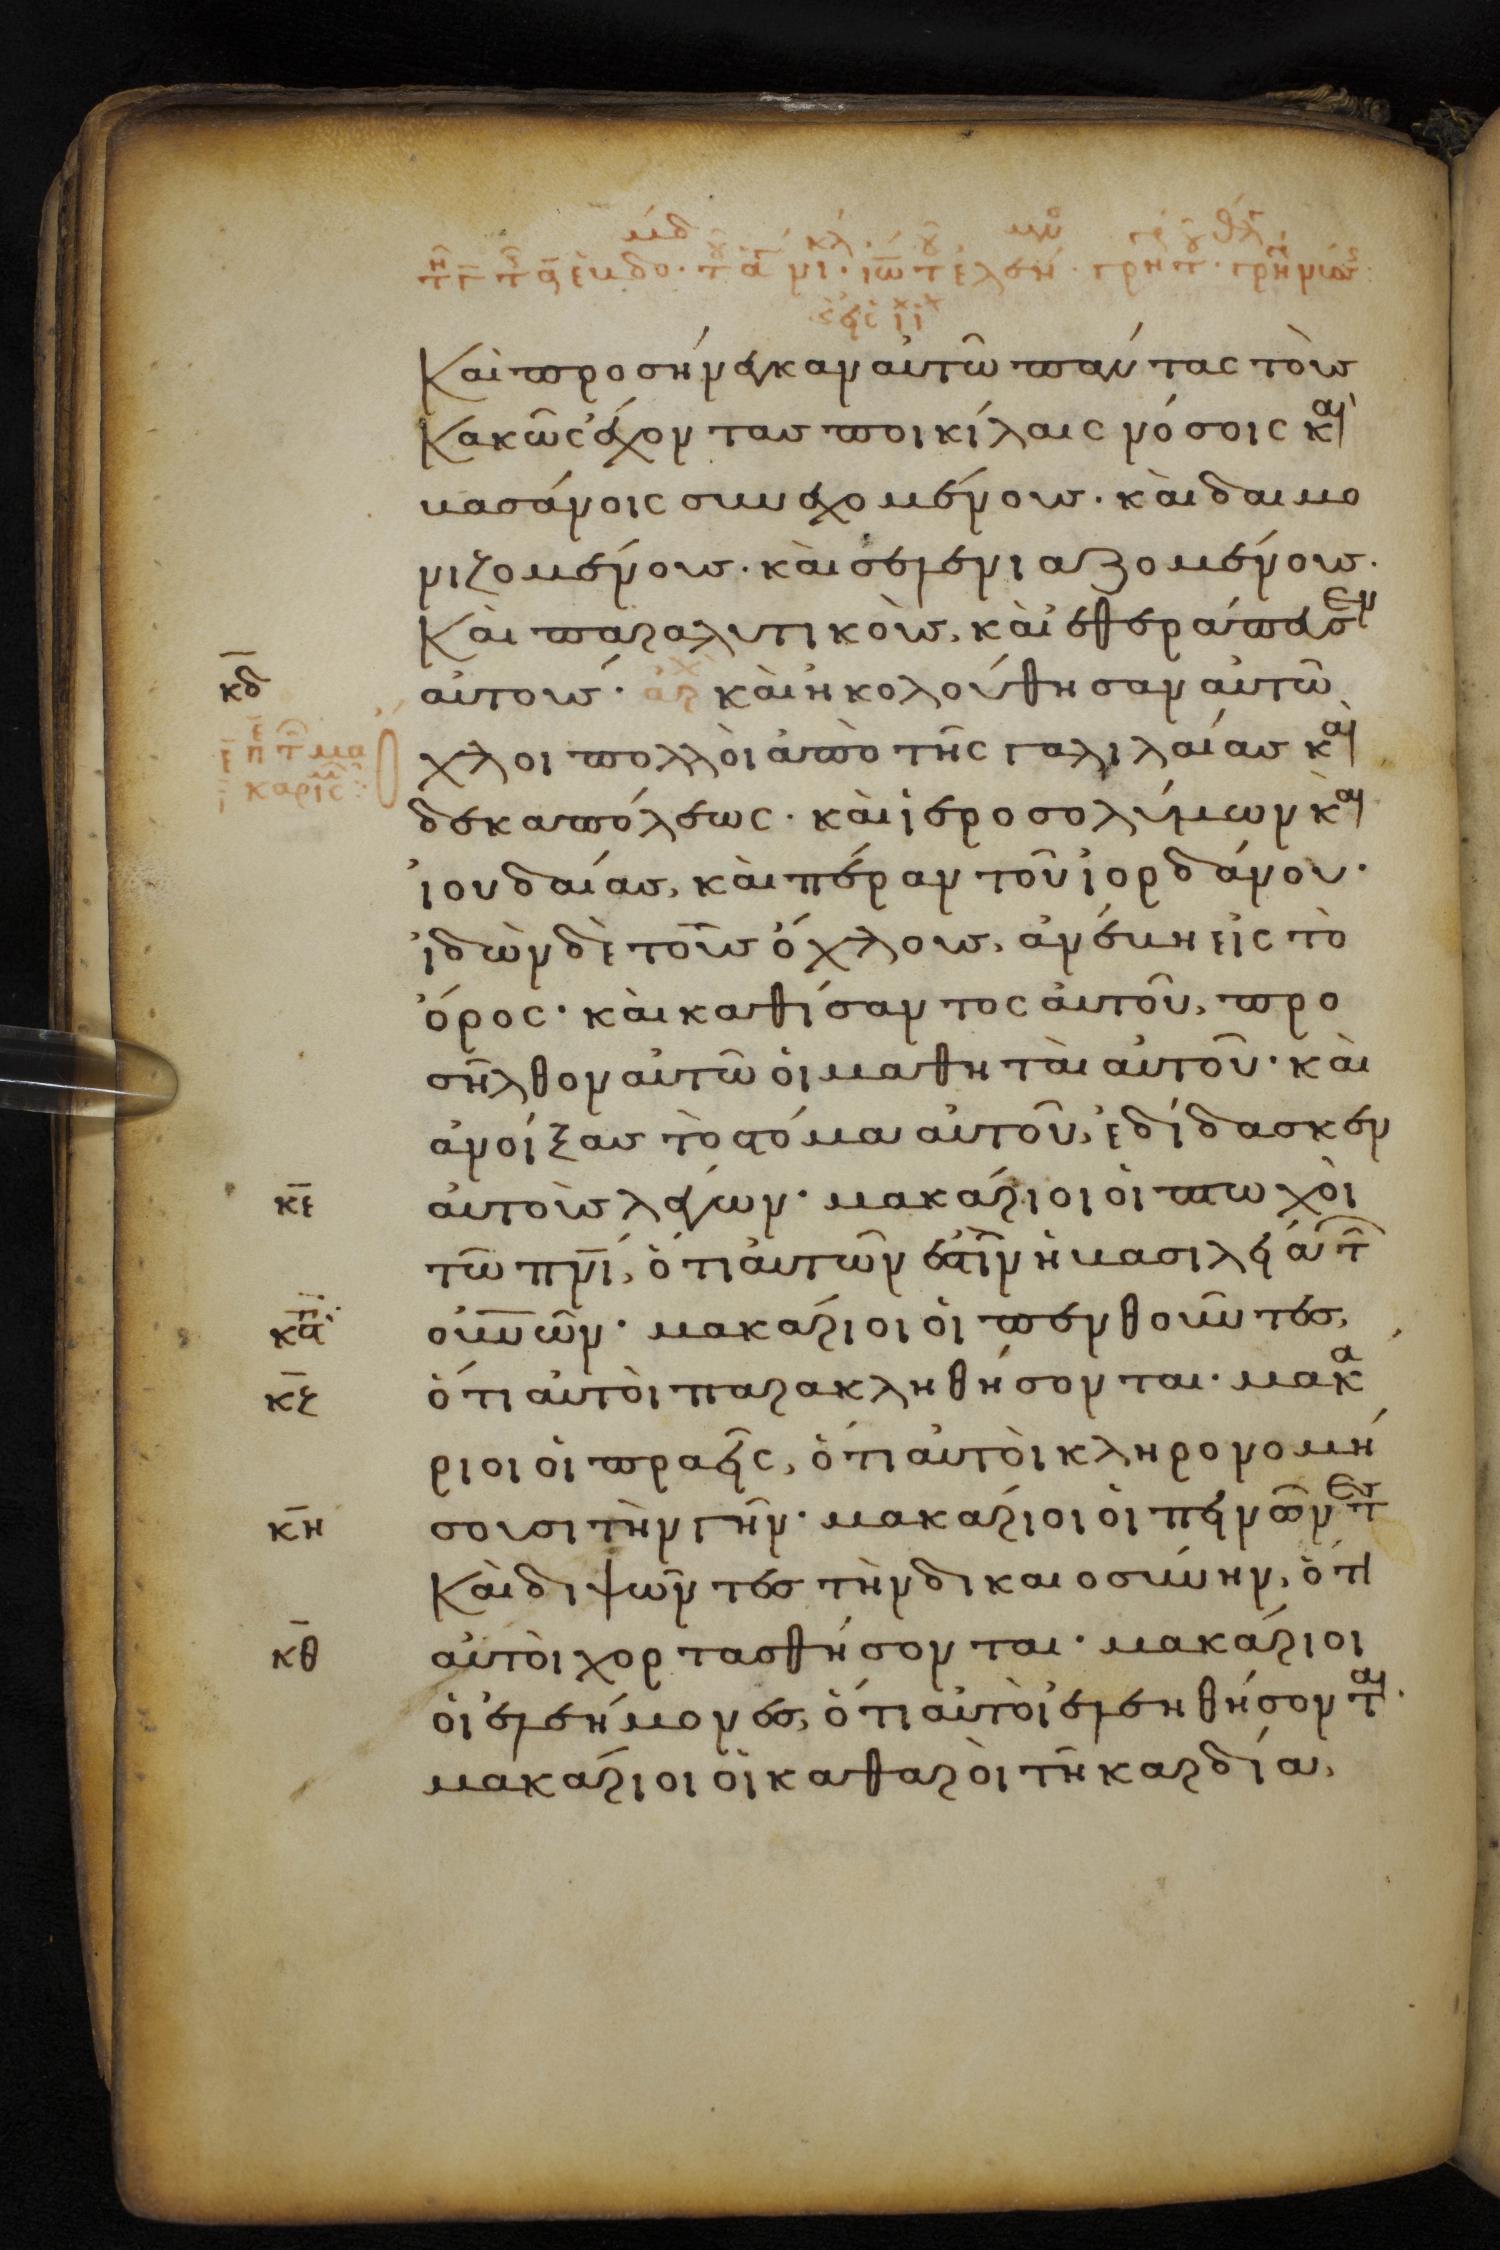 Καὶ προσήνεγκαν αὐτῶ πάντας τοὺς
Κακῶς ἔχοντας ποικίλαις νόσοις καὶ
βασάνοις συνεχομένους· καὶ δαιμο
νιζομένους· καὶ σεληνιαζομένους·
Καὶ παραλυτικοὺς, καὶ ἐθεράπευσεν
κδ αὐτούς· καὶ ἠκολούθησαν αὐτῶ
ὄχλοι πολλοὶ ἀπὸ τῆς γαλιλαίας καὶ
δεκαπόλεως· καὶ ἱεροσολύμων καὶ
ἰουδαίας, καὶ πέραν τοῦ ἰορδάνου·
ἰδὼν δὲ τοὺς ὄχλους, ἀνέβη εἰς τὸ
ὄρος· καὶ καθίσαντος αὐτοῦ, προ
σῆλθον αὐτῶ οἱ μαθηταὶ αὐτοῦ· καὶ
ἀνοίξας τὸ στόμα αὐτοῦ, ἐδίδασκεν
κε αὐτοὺς λέγων· μακάριοι οἱ πτωχοὶ
τῶ πνι, ὅτι αὐτῶν ἐστὶν ἡ βασιλεία τῶν
οὐνῶν· μακάριοι οἱ πενθοῦντες,
κζ ὅτι αὐτοὶ παρακληθήσονται· μακά
ριοι οἱ πραεῖς, ὅτι αὐτοὶ κληρονομή
κη σουσι τὴν γῆν· μακάριοι οἱ πεινῶντες
Καὶ διψῶντες τὴν δικαιοσύνην, ὅτι
κθ αὐτοὶ χορτασθήσονται· μακάριοι
οἱ ἐλεήμονες, ὅτι αὐτοὶ ἐλεηθήσονται·
μακάριοι οἱ καθαροὶ τῆ καρδία,